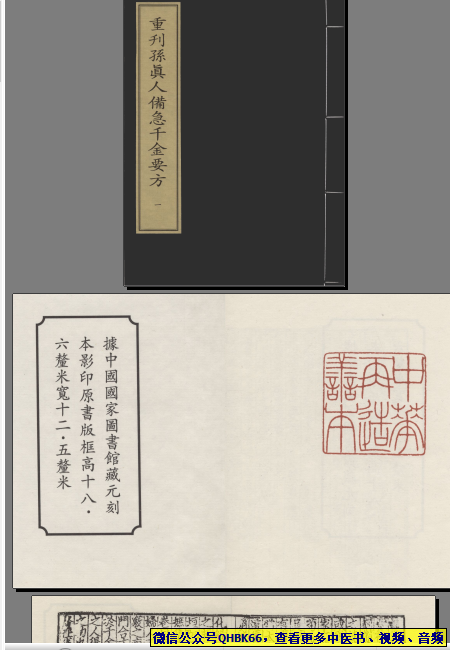 重刊孫眞人備急千金要方 一
據中國國家圖書館藏元刻
本影印原書版框高十八·
六釐米寬十二·五釐米
中華
再造
善本
微信公众号QHBK66，查看更多中医书、视频、音频